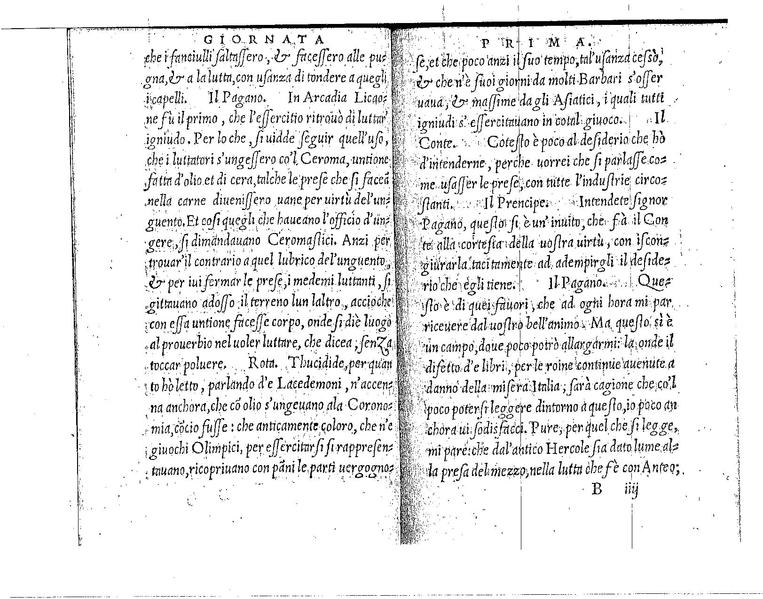 GIORNATA
che i fanciulli saltassero, & facessero alle pu-
gna, & a la lutta, con usanza di tondere a quegli
i capelli. Il Pagano. In Arcadia Licao-
ne fù il primo, che l'essercitio ritrouò di luttar
igniudo. Per lo che, si uidde seguir quell'uso,
che i luttatori s'ungessero co'l Ceroma, untione
fatta d'olio et di cera, talche le prese che si faceā
nella carne diuenissero uane per uirtù del'un-
guento. Et cosi quegli che haueano l'officio d'un-
gere, si dimandauano Ceromastici. Anzi per
trouar il contrario a quel lubrico del'unguento,
& per iui fermar le prese, i medemi luttanti, si
gittauano adosso il terreno lun laltro, accioche
con essa untione facesse corpo, onde si diè luogo
al prouerbio nel uoler luttare, che dicea; senza
toccar poluere. Rota. Thucidide, per quan
to hò letto, parlando d'e Lacedemoni, n'accen-
na anchora, che cō olio s'ungeuano ala Corono-
mia, cōcio fusse: che anticamente coloro, che n'e
giuochi Olimpici, per essercitarsi si rappresen-
tauano, ricopriuano con pāni le parti uergogno-
PRIMA.
se, et che poco anzi il suo tempo, tal'usanza cessò,
& che n'è suoi giorni da molti Barbari s'osser
uaua, & massime da gli Asiatici, i quali tutti
igniudi s'essercitauano in cotal giuoco. Il
Conte. Cotesto è poco al desiderio che hò
d'intenderne, perche uorrei che si parlasse co-
me usasser le prese, con tutte l'industrie circo-
stanti. Il Prencipe. Intendete signor
Pagano, questo si è un'inuito, che fà il Con
te alla cortesia della uostra uirtù, con iscon-
giurarla tacitamente ad adempirgli il deside-
rio che egli tiene. Il Pagano. Que-
sto è di quei fauori, che ad ogni hora mi par
riceuere dal uostro bell'animo. Ma questo si è
un campo, doue poco potrò allargarmi: la onde il
difetto d'e libri, per le roine continue auenute a
danno della misera Italia; sarà cagione che co'l
poco potersi leggere dintorno a questo, io poco an
chora ui sodisfacci. Pure, per quel che si legge,
mi pare: che dal'antico Hercole sia dato lume al-
la presa del mezzo, nella lutta che fè con Anteo;
B iiij